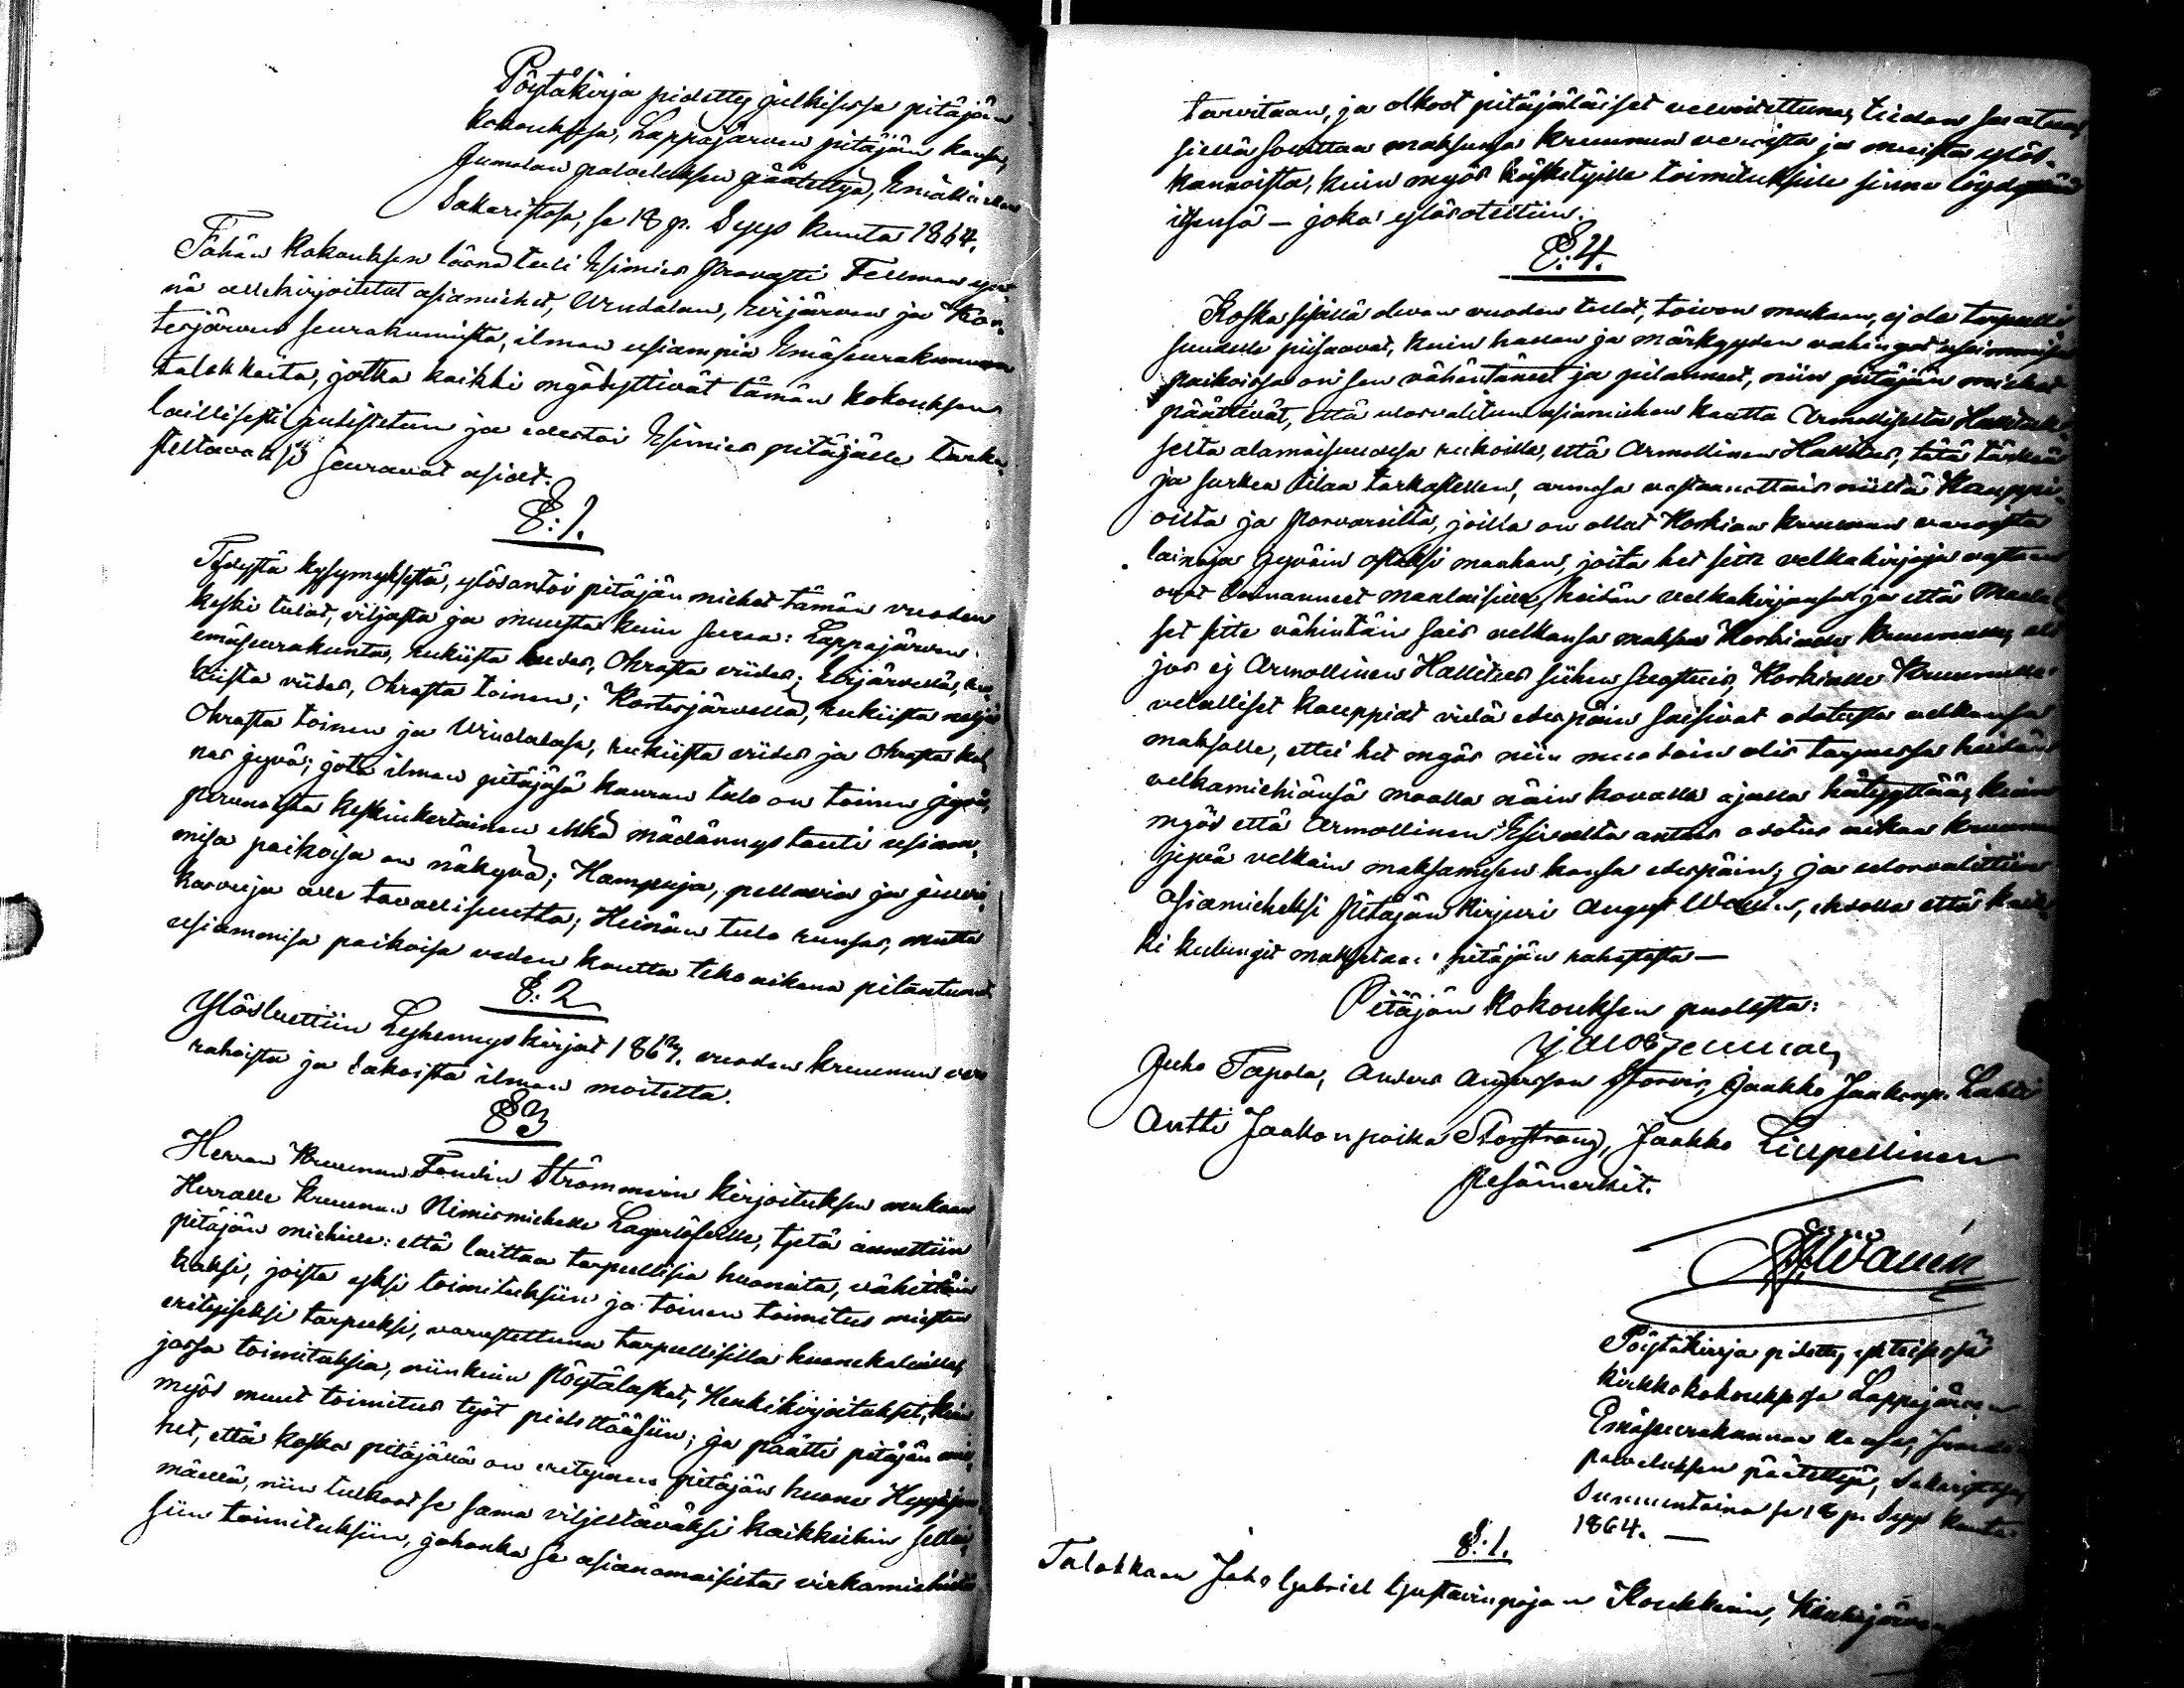 Pöytäkirja pidetty julkisessa pitäjän
kokouksessa, Lappajärven pitäjän kansa,
Jumalan palveluksen päätettyä, Emäkirkon
Sakaristosa, se 18 p. Syys kuuta 1864.
Tähän kokouksen läsnä tuli Esimies Provasti Fellman ynnä
nä allekirjoitetut asiamiehet, Vindalan, Evijärven ja Kor-
tesjärven seurakunnista, ilman usiampia Emäseurakunnan
talokkaita, jotka kaikki myödyttivät tämän kokouksen
laillisesti julistetun ja edestoi Esimies pitäjälle tarka-
steltavaksi seuravat asiat.
§: 1.
Tehdystä kysymyksestä, ylösantoi pitäjän miehet tämän vuoden
keski tulot, viljasta ja muusta kuin seuraa: Lappajärven
emäseurakunta, rukiista kudes, Ohrasta viides; Evijärvellä, ru-
kiista viides, Ohrasta toinen; Kortesjärvellä, rukiista neljäs
Ohrasta toinen ja Vindalasa, rukiista viides ja Ohrasta kol-
nas jyvä; jota ilman pitäjäsä kauran tulo on toinen jyvä,
perunoista keskinkertainen ehkä mädännystauti usiam-
misa paikoisa on näkyvä; Hampuja, pellavia ja juuri-
kasvuja alle tavallisuutta; Heinän tulo runsas, mutta
usiammisa paikoisa veden kautta teko aikana pilantunut
§: 2
Ylösluettiin Lyhennyskirjat 1863. vuoden kruunun vero
rahoista ja takoista ilman moitetta.
§ 3
Herran Kruunun Foudin Strömmerin kirjoituksen mukaan
Herralle kruunun Nimismiehelle Lagerlöfille, tjetä annettiin
pitäjän miehille: että laittaa tarpeellisia huoneita, vähittäin
kaksi, joista yksi toimituksiin ja toinen toimitus miesten
erityiseksi tarpeeksi, varustettuna tarpeellisilla huonekaluilla,
jossa toimituksia, niinkuin Pöytälaskut, Henkikirjoitukset, kuin
myös muut toimitus työt pidettääsiin; ja päätti pitäjän mie-
het, että koska pitäjällä on erityinen pitäjän huone Hyyjän-
mäellä, niin tulkoot se sama viljeltäväksi kaikkiihin sellai-
siin toimituksiin, johonka se asianomaisilta virkamiehiltä
tarvitaan, ja olkoot pitäjäläiset velvoitettuna, tiedon saatua,
siellä suorittaa maksunsa kruunun veroista ja muista ylös-
kannoista, kuin myös käsketyille toimituksille sinne löydyttää
itsensä – joka ylösotettiin.
§: 4.
Koska sisällä olevan vuoden tulot, toivon mukaan, ej ole tarpeelli-
suudelle piisaavat, kuin hallan ja märkyyden vahingot usiammisa
paikoissa on sen vähentäneet ja pilanneet, niin pitäjän miehet
päättivät, että ulosvalitun asiamiehen kautta Armolliselta Hallituk-
selta alamaisuudesa rukoilla, että Armollinen Hallitus, tätä tärkiää
ja surkea tilaa tarkastellen, armosa vastaanottais niiltä Kauppi-
oilta ja Porvareilta, joilla on ollut Korkian kruunun varoista
lainoja jyväin ostoksi maahan, joita het sitte velkakirjoja vastaan
ovat lainanneet maalaisille, heidän velkakirjansa ja että Maalai-
set sitte vähintäin sais velkansa maksaa Korkialle kruunulle, eli
jos ej Armollinen Hallitus siihen suostuis, Korkialle Kruunulle
velalliset kauppiat vielä edespäin saisivat odotusta velkansa
maksolle, ettei het myös niin muodoin olis tarpeessa heidän
velkamiehiänsä maalla näin kovalla ajalla hätyyttää, kuin
myös että Armollinen Esivalta antais odotus aikaa kruunun
jyvä velkain maksamisen kansa edespäin; ja ulosvalittiin
asiamieheksi Pitäjän kirjuri August Walin, ehdolla että kaik-
ki kulungit maksetaan pitäjän rahastosta –
Pitäjän Kokouksen puolesta:
Jacob Fellman
Juho Tapola, Anders Andersson Storvis, Jaakko Jaakonp. Lahti
Antti Jaakonpoika Storstrang, Jaakko Liupellinen
Pesämerkit.
A. Walin
Pöytäkirja pidetty yhteisesä
kirkkokokouksesa Lappajärven
Emäseurakunnan kansa, Jumalan
palveluksen päätettyä, Sakaristosa,
Sunnuntaina se 18 p. Syys kuuta
1864. –
§: 1.
Talokkaan Joh. Gabriel Gustavinpojan Koukkarin, Kärkijärven